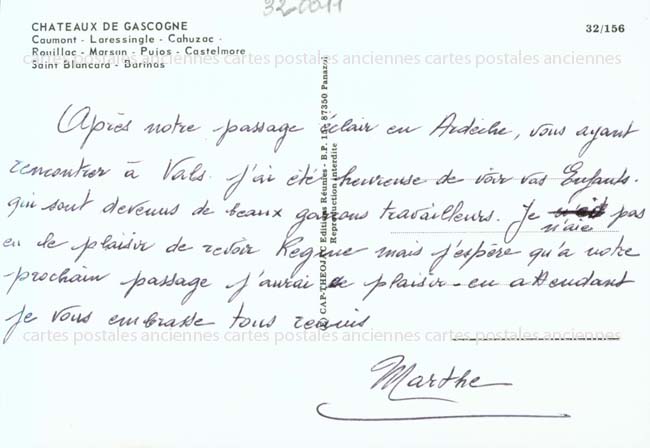 32-0011
CHATEAUX DE GASCOGNE
Caumont - Laressingle - Cahuzac -
Rouillac - Marsan - Pujos - Castelmore
Saint Blancard - Barinos
32/156
cartes postales anciennes cartes postales anciennes cartes postales anciennes
Après notre passage éclair en Ardèche, vous ayant
rencontrer à Vals. j'ai été heureuse de voir vos Enfants.
qui sont devenus de beaux garçons travailleurs. Je n'ait pas
n'aie
eu le plaisir de revoir Regine mais j'espère qu'a notre
prochain passage j'aurai ce plaisir - en attendant
je vous embrasse tous reunis
Marthe
cartes postales anciennes cartes postales anciennes cartes postales anciennes
cartes postales anciennes cartes postales anciennes cartes postales anciennes
CAP-THEOJAC Editions Réunies - B.P. 87350 Panazol
Reproduction interdite